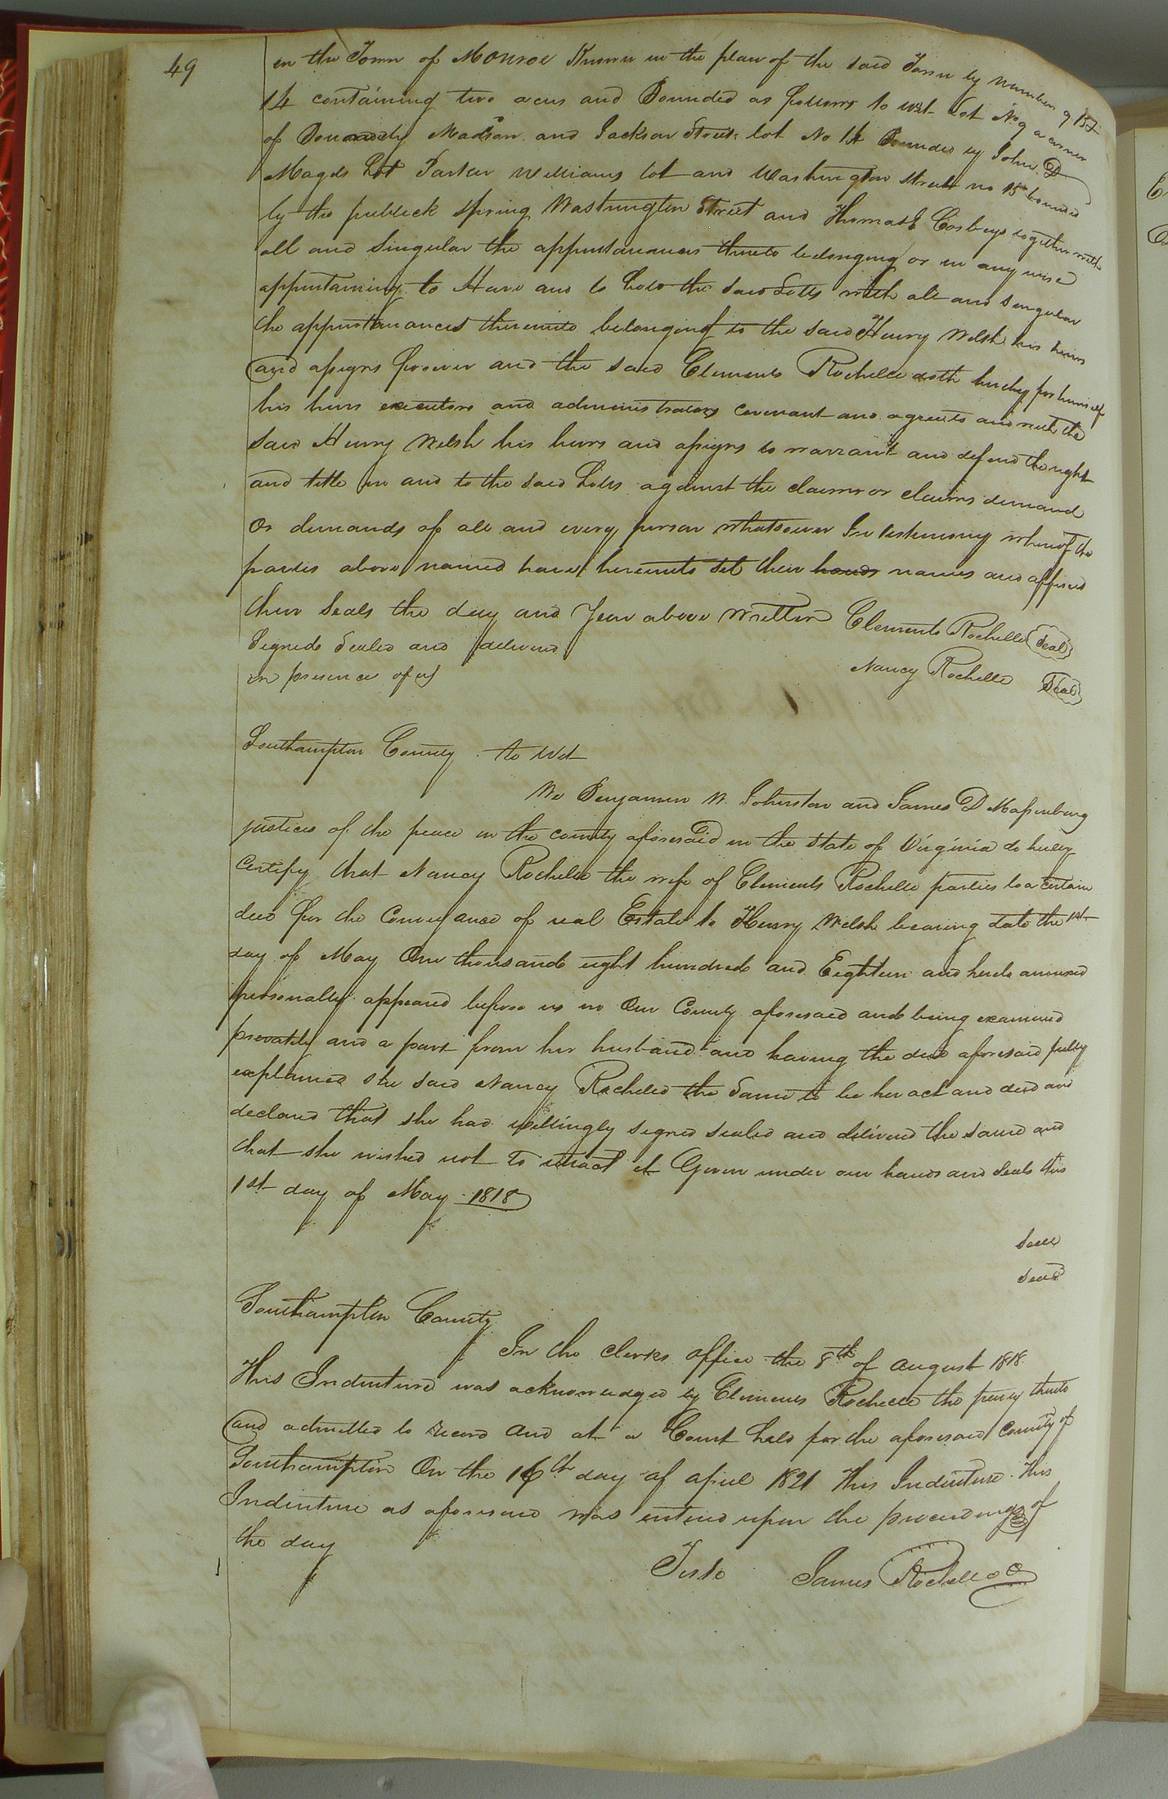 49
in the Town of Monroe Known in the plan of the said Town by numbers 9 15 &
14 containing two acres and Bounded as follows to wit Lot No 9 a corner
of Madison and Jackson Street lot No 14 Bounded by John D
Lot Parker Williams lot and Washington Street no 15 bounded
by the publick spring Washington Street and Thomas Cosbeys together with
all and Singular the appurtenances thereto belonging or in any wise
appurtaining to Have and to hold the said Lotts with all and singular
the appurtenances thereunto belonging to the said Henry Welsh his heirs
and assigns forever and the said Clements Rochelle doth hereby for himself
his heirs executors and administrators covenant and agree to and with the
said Henry Welsh his heirs and assigns to warrant and defend the right
and title in and to the said Lotts against the claim or claims demand
Or demands of all and every person whatsoever In testimony whereof the
parties above named have hereunto set their hands names and affixed
their Seals the day and Year above written Clements Rochelle Seal
Signed Sealed and delivered
in presence of us
Nancy Rochelle Seal
Southampton County to Wit
We Benjamin W. Johnston and James D Massenburg
justices of the peace in the county aforesaid in the State of Virginia do hereby
Certify that Nancy Rochelle the wife of Clements Rochelle parties to a certain
deed for the Conveyance of real Estate to Henry Welsh bearing date the 1st
day of May One thousand eight hundred and Eighteen and hereto annexed
personally appeared before us in Our County aforesaid and being examined
privately and a part from her husband and having the deed aforesaid fully
explained She said Nancy Rochelle the Same to be her act and deed and
declared that she had willingly signed sealed and delivered the same and
that she wished not to retract it Given under our hands and Seals this
1st day of May 1818
Seal
Seal
Southampton County
In the clerks office the 8th of august 1818
This Indenture was acknowledged by Clements Rochelle the party thereto
and admitted to record and at a Court held for the aforesaid County of
Southampton On the 16th day of april 1821 This Indenture This
Indenture as aforesaid was entered upon the proceedings of
the day
Teste James Rochelle CC